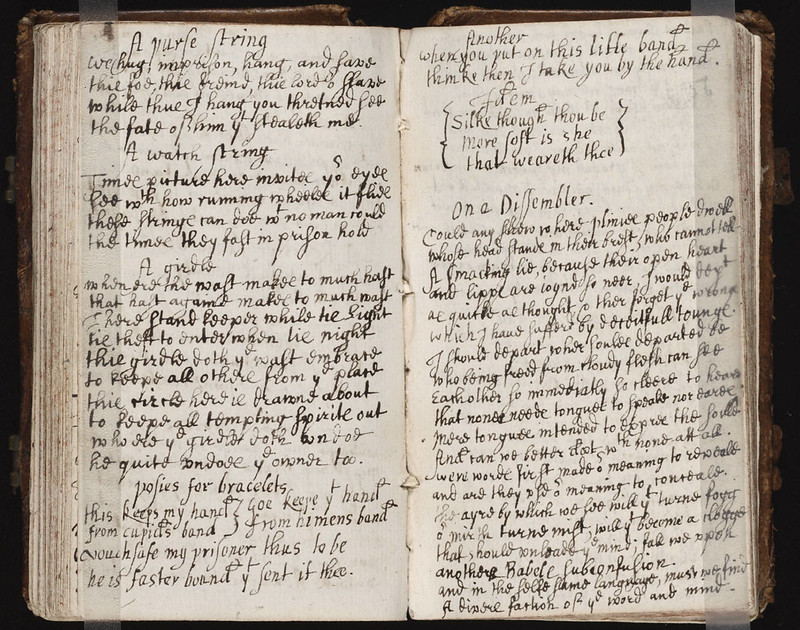 A purse string
We hug, imprison, hang, and save
this foe, this freind, this lord o slave
while thus I hang you thretned see
the fate of him yt stealeth me.
A watch string
Times picture here invites yor eyes
see wth how running wheeles it flies
these strings can doe wt no man could
the times they fast in prison hold
A girdle
when ere the wast makes to much hast
that hast againe makes to much wast
I here stand keeper while tis light
tis theft to enter when tis night
this girdle doth ye wast embrace
to keepe all others from ye place
this circle here is drawne about
to keepe all tempting spirits out
who ere ye girdle doth undoe
he quite undoes ye owner too.
posies for bracelets
this keeps my hand } goe keepe yt hand
from cupids band } from himens band
vouchsafe my prisoner thus to be
he is faster bound yt sent it thee.
Another
when you put on this litle band
thinke then I take you by the hand.
Item
{ Silke though thou be
more soft is she
that weareth thee }
On a Dissembler.
Could any shew where plinies people dwell
whose head stands in their brest, who cannot tell
A smacking lie, because their open heart
and lipps are ioynd so neer, I would
as quicke as thought o ther forget ye wrongs
which I have sufferd by deceitfull toungs
I should depart where soules departed be
who being freed from cloudy flesh can see
Each other so immediatly so cleere
that none needs tongues to speake nor eares
meere tongues intended to expres the soule
And can we better wth none att all.
were words first made o meaning to reveale
and are they usd o meaning to conceale.
the ayre by which we see will yt turne fogg
o mirth turne mist, will yt become a clogge
that should unloade ye mind: fall we upon
another Babels subconfusion
and in the selfe same language, must we find
A divers faction of ye word and mind.